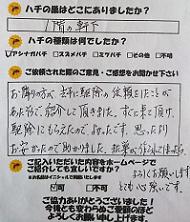 ハチの巣はどこにありましたか？
1階の軒下
ハチの種類は何でしたか？
アシナガバチ □スズメバチ □ミツバチ □その他 □不明
ご依頼された際のご意見・ご感想をお聞かせ下さい
お隣りの方が去年駆除の依頼をしたことが
あったので、紹介して頂きました。すぐに来て頂け、
駆除してもらえたので、よかったです。思ったより
おやすかったので助かりました。
ご記入いただいた内容をホームページで
ご紹介しても宜しいですか？
可 □不可
ご協力ありがとうございました！
今後とも変わらぬご愛顧の程
よろしくお願い申し上げます。